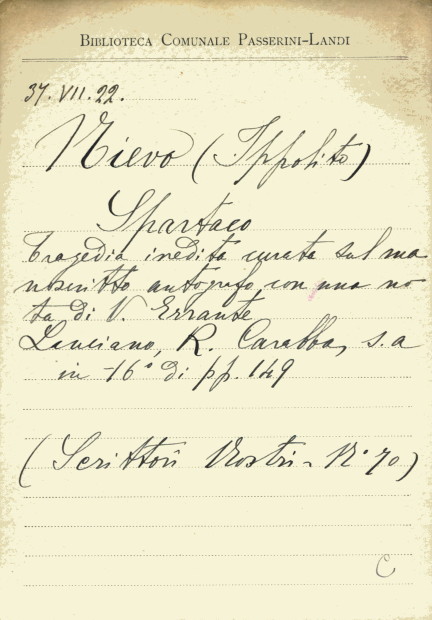 BIBLIOTECA COMUNALE PASSERINI-LANDI
37.VII.22.
Nievo (Ippolito)
Spartaco
Tragedia inedita curata sul ma
noscritto autografo, con una no
ta di V. Errante
Lanciano, R. Carabba, s.a
in -16° di pp. 149
(Scrittori Nostri - N° 70)
C